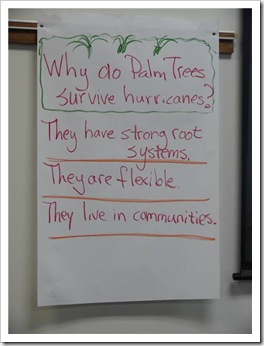 Why do Palm Trees
survive hurricanes?
They have strong root
systems.
They are flexible.
They live in communities.